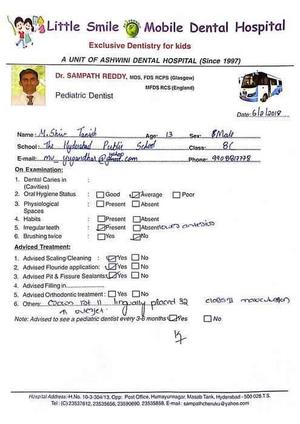 Little Smile Mobile Dental Hospital
Exclusive Dentistry for kids
A UNIT OF ASHWINI DENTAL HOSPITAL (Since 1997)
Dr. SAMPATH REDDY, MDS, FDS RCPS (Glasgow)
MFDS RCS (England)
Pediatric Dentist
Date:
Name: M. Shiv Tanish Age: 13 Sex: Male
School: The Hyderabad Public School Class: 8C
E-mail: @yahoo.com Phone:
On Examination:
1. Dental Caries in :
(Cavities)
2. Oral Hygiene Status : Good Average Poor
3. Physiological : Present Absent
Spaces
4. Habits : Present Absent
5. Irregular teeth : Present Absent
6. Brushing twice : Yes No
Adviced Treatment:
1. Advised Scaling/Cleaning : Yes No
2. Advised Flouride application: Yes No
3. Advised Pit & Fissure Sealants: Yes No
4. Advised Filling in
5. Advised Orthodontic treatment : Yes No
6. Others: lingually placed 32
overjet
Note: Advised to see a pediatric dentist every 3-6 months Yes No
Hospital Address: H.No. 10-3-304/13, Opp: Post Office, Humayunnagar, Masab Tank, Hyderabad - 500 028 T.S.
Tel: (C) 23537612, 23535656, 23590690, 23535858. E-mail: sampathcheruku@yahoo.com